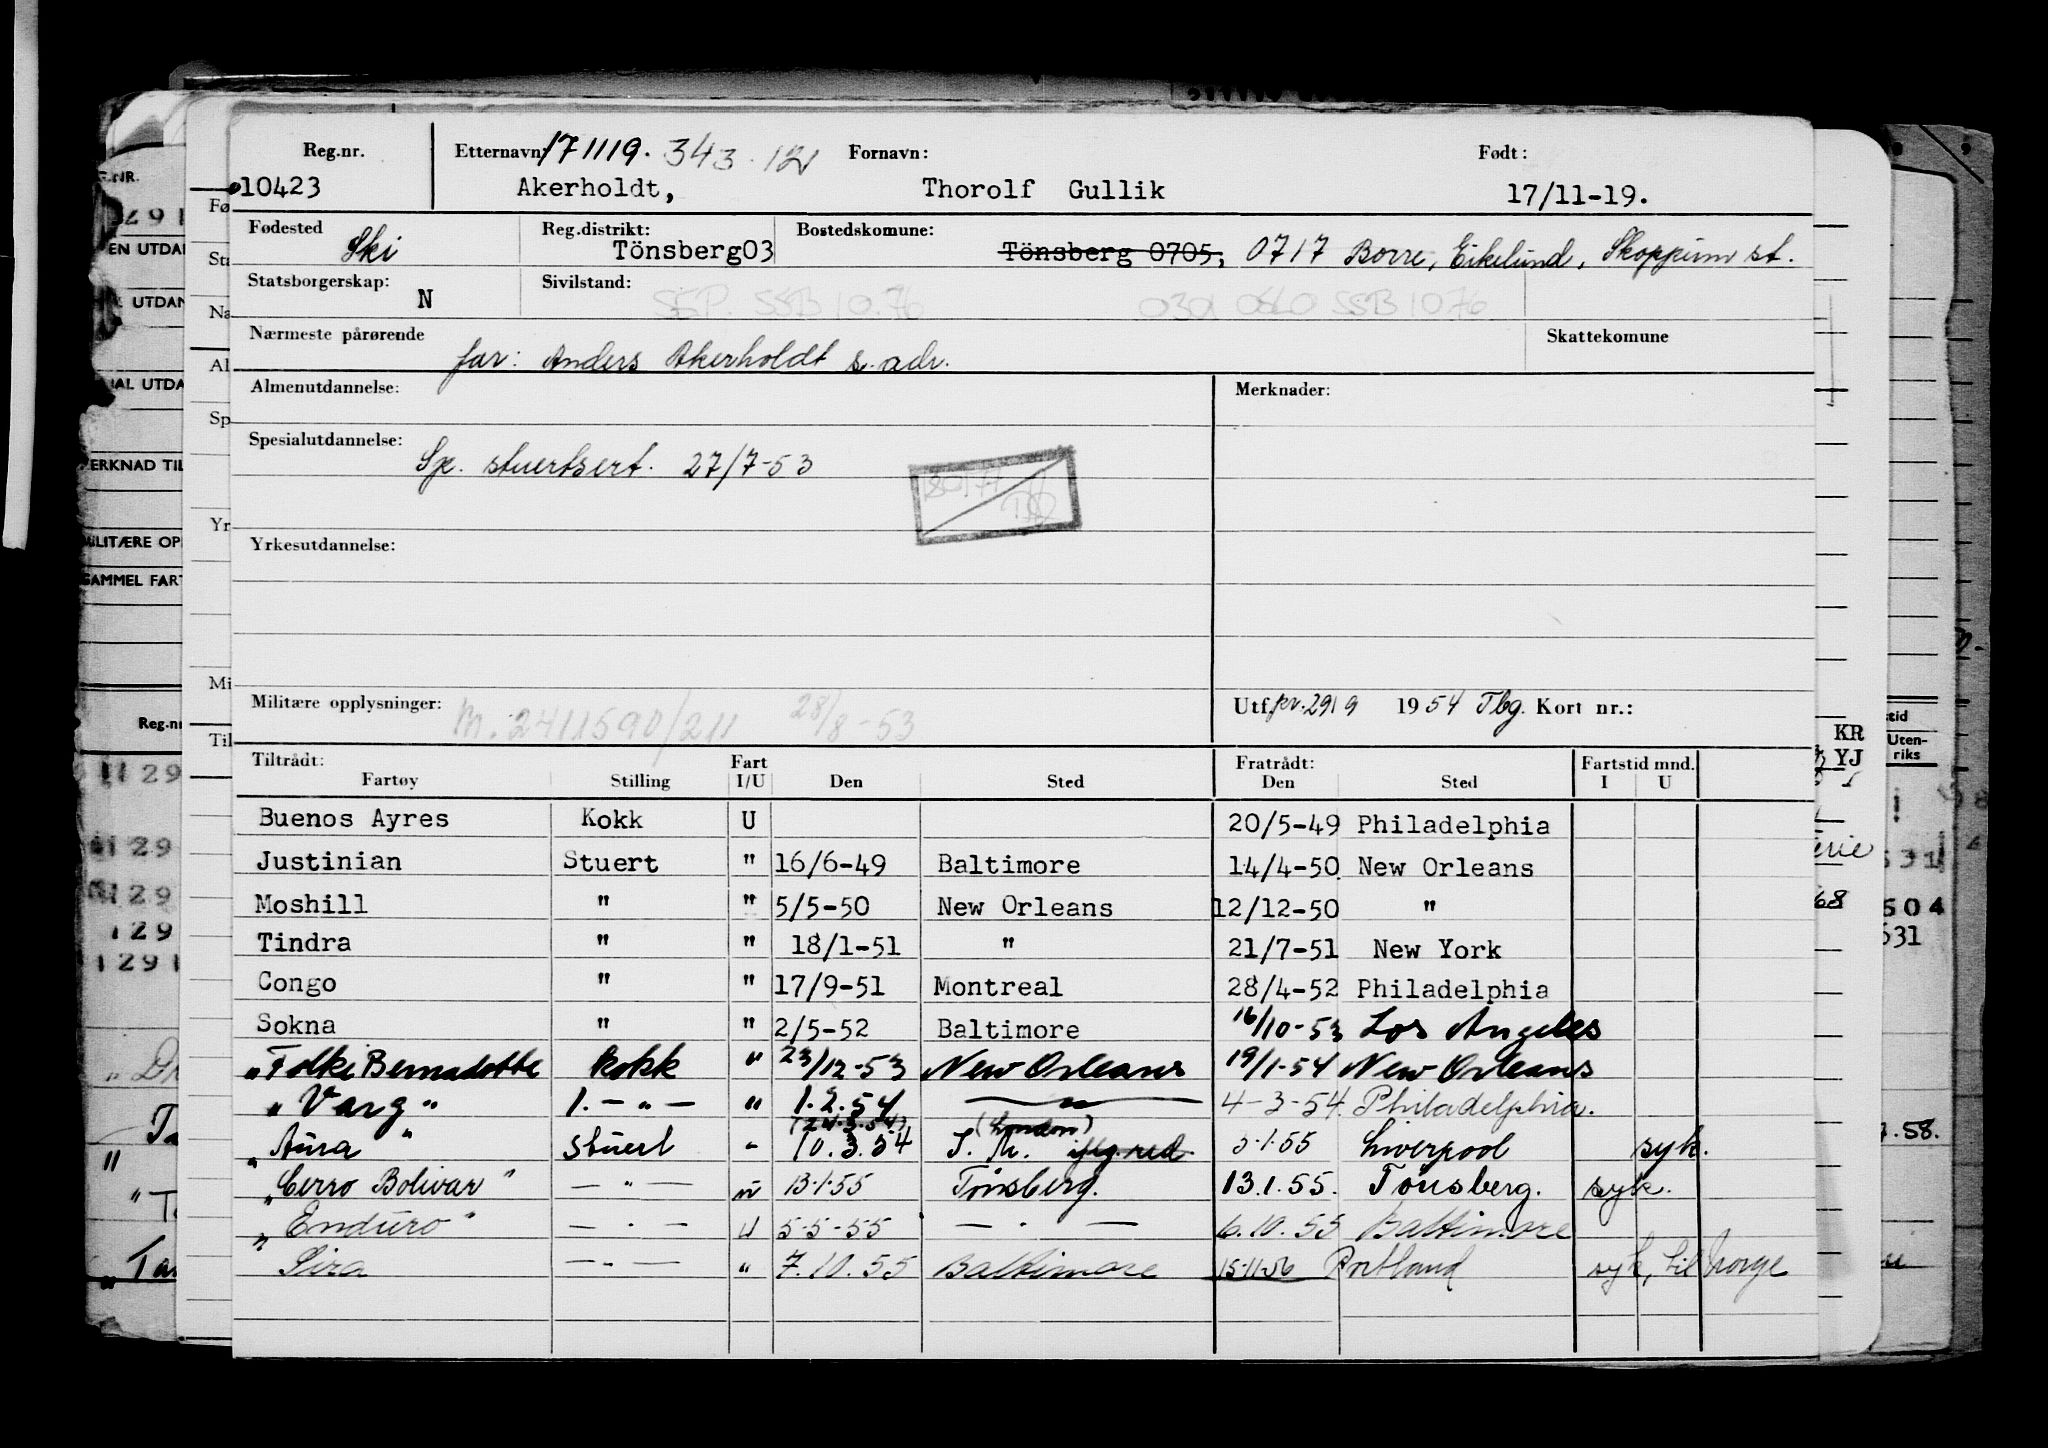 Reg.nr. Etternavn: 171119. 343 12 Fornavn: Født:
10423 Akerholdt, Thorolf Gullik 17/11-19.
Fødested Ski Reg.distrikt: Tönsberg03 Bostedskomune: Tönsberg 0705, 0717 Borre, Eikelund, Skoppum st.
Statsborgerskap: N Sivilstand: SEP. SSB 10.76 0301 OSLO SSB 1076
Nærmeste pårørende far: Anders Akerholdt s. adr. Skattekomune
Almenutdannelse: Merknader:
Spesialutdannelse: Sp. stuertsert. 27/7-53
Yrkesutdannelse:
Militære opplysninger: M. 2411590/211 28/8-53 Utf. pr. 29/9 1954 Tbg. Kort nr.:
Tiltrådt: Fart Fratrådt: Fartstid mnd.
Fartøy Stilling I/U Den Sted Den Sted I U
Buenos Ayres Kokk U 20/5-49 Philadelphia
Justinian Stuert " 16/6-49 Baltimore 14/4-50 New Orleans
Moshill " " 5/5-50 New Orleans 12/12-50 "
Tindra " " 18/1-51 " 21/7-51 New York
Congo " " 17/9-51 Montreal 28/4-52 Philadelphia
Sokna " " 2/5-52 Baltimore 16/10-53 Los Angeles
"Folke Bernadotte Kokk " 23/12-53 New Orleans 19/1-54 New Orleans
"Varg" 1. - " - " 1.2.54 - " - 4-3-54. Philadelphia.
(24.3.54) (London)
"Aura" Stuert " 10.3.54 3-1.55 Liverpool syk.
"Cerro Bolivar" - " - " 13-1-55 Tönsberg. 13.1.55. Tönsberg. syk.
"Enduro" - " - U 5-5-55 - " - 6.10.55 Baltimore
Sira - " - " 7.10.55 Baltimore 15-11-56 Portland syk, til Norge